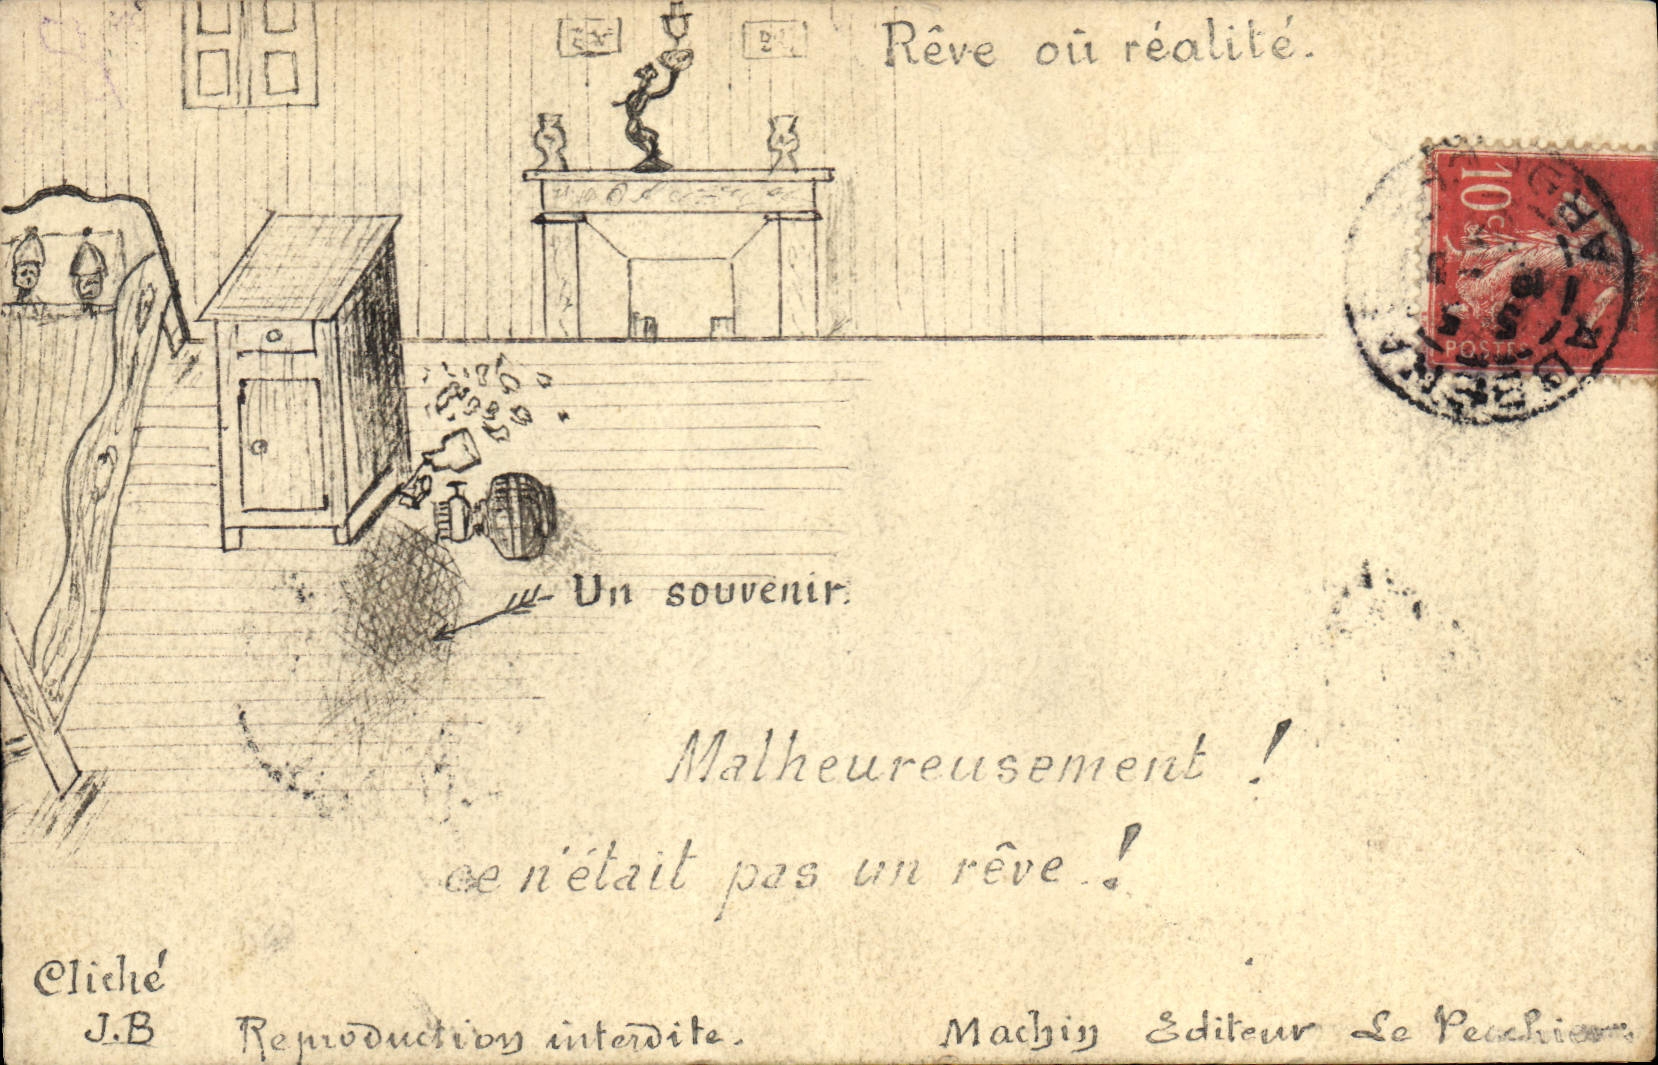 Rêve où réalité.
10c
POSTES
Un souvenir.
Malheureusement !
ce n'était pas un rêve !
Cliché
J.B
Reproduction interdite.
Machin Editeur Le